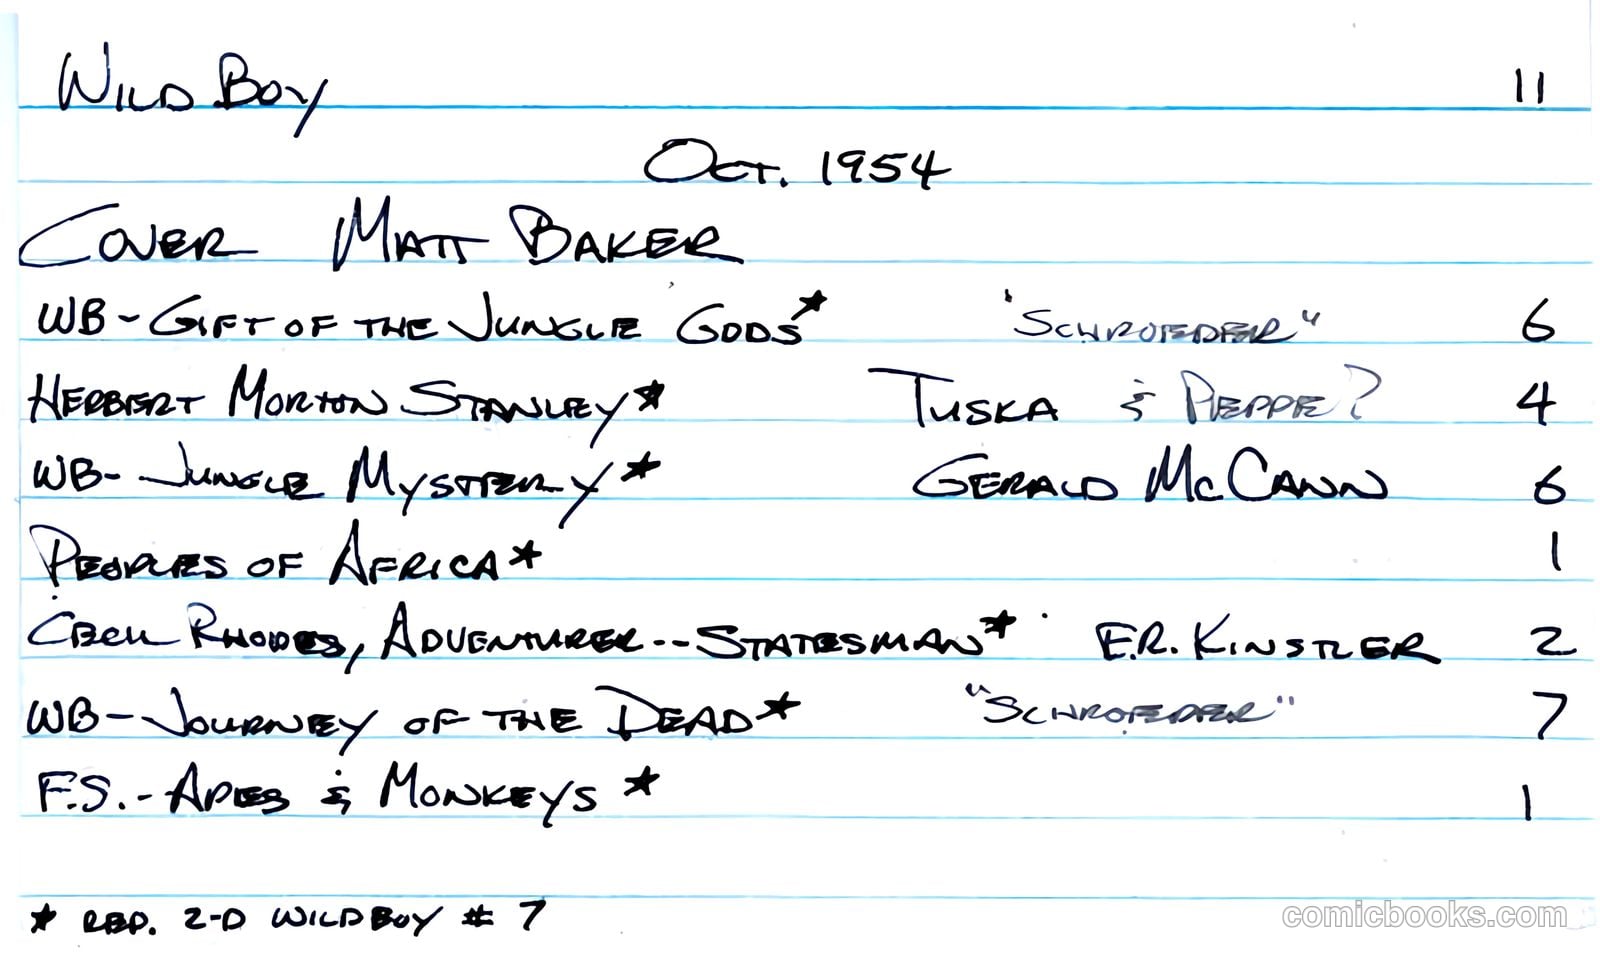 WILD BOY 11
OCT. 1954
COVER MATT BAKER
WB - GIFT OF THE JUNGLE GODS* "SCHROEDER" 6
HERBERT MORTON STANLEY* TUSKA & PIEPPE? 4
WB - JUNGLE MYSTERY* GERALD McCANN 6
PEOPLES OF AFRICA* 1
CECIL RHODES, ADVENTURER -- STATESMAN* E.R. KINSTLER 2
WB - JOURNEY OF THE DEAD* "SCHROEDER" 7
F.S. - APES & MONKEYS * 1
* REP. Z-D WILD BOY # 7
comicbooks.com